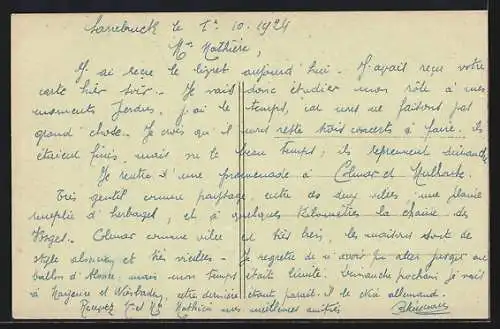 Sarrebruck le 1er. 10. 1924
Mr Mathière,
J'ai reçue le livret aujourd'hui. J'avait reçu votre
carte hier soir. Je vais donc étudier mon rôle à mes
moments perdus, j'ai le temps, car nous ne faisons pas
grand chose. Je crois qu'il nous reste trois concerts à faire. ils
étaient finis, mais vu le beau temps, ils reprennent dimanche
Je rentre d'une promenade à Colmar et Mulhouse.
Très gentil comme paysage, entre ces deux villes, une plaine
remplie d'herbages, et à quelques kilomètres la chaine des
Vosges. Colmar comme ville est très bien, les maisons sont de
style alsacien et très vieilles. Je regrette de n'avoir pu aller jusqu'au
ballon d'Alsace, mais mon temps était limité. Dimanche prochain, je vais
à Mayence et Wiesbaden, cette dernière étant parait-il le élé allemand.
Recevez Mr et Me Mathieu mes meilleures amitiés